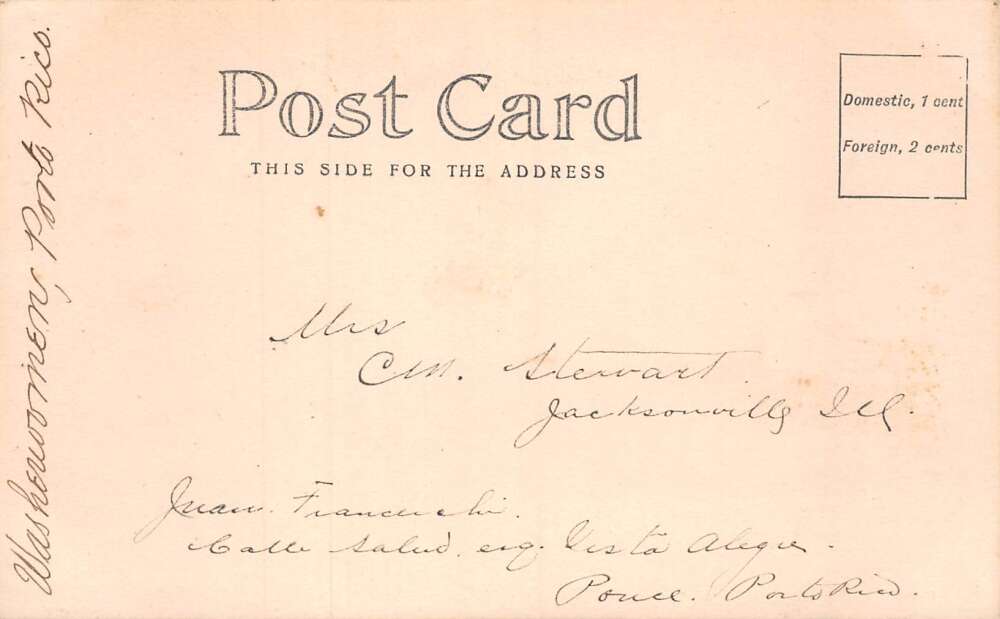 Post Card
THIS SIDE FOR THE ADDRESS
Domestic, 1 cent
Foreign, 2 cents
Washerwomen, Porto Rico.
Mrs
C.M. Stewart.
Jacksonville Ill.
Juan.
Calle Salud, esq. Vista Alegre.
Ponce. Porto Rico.